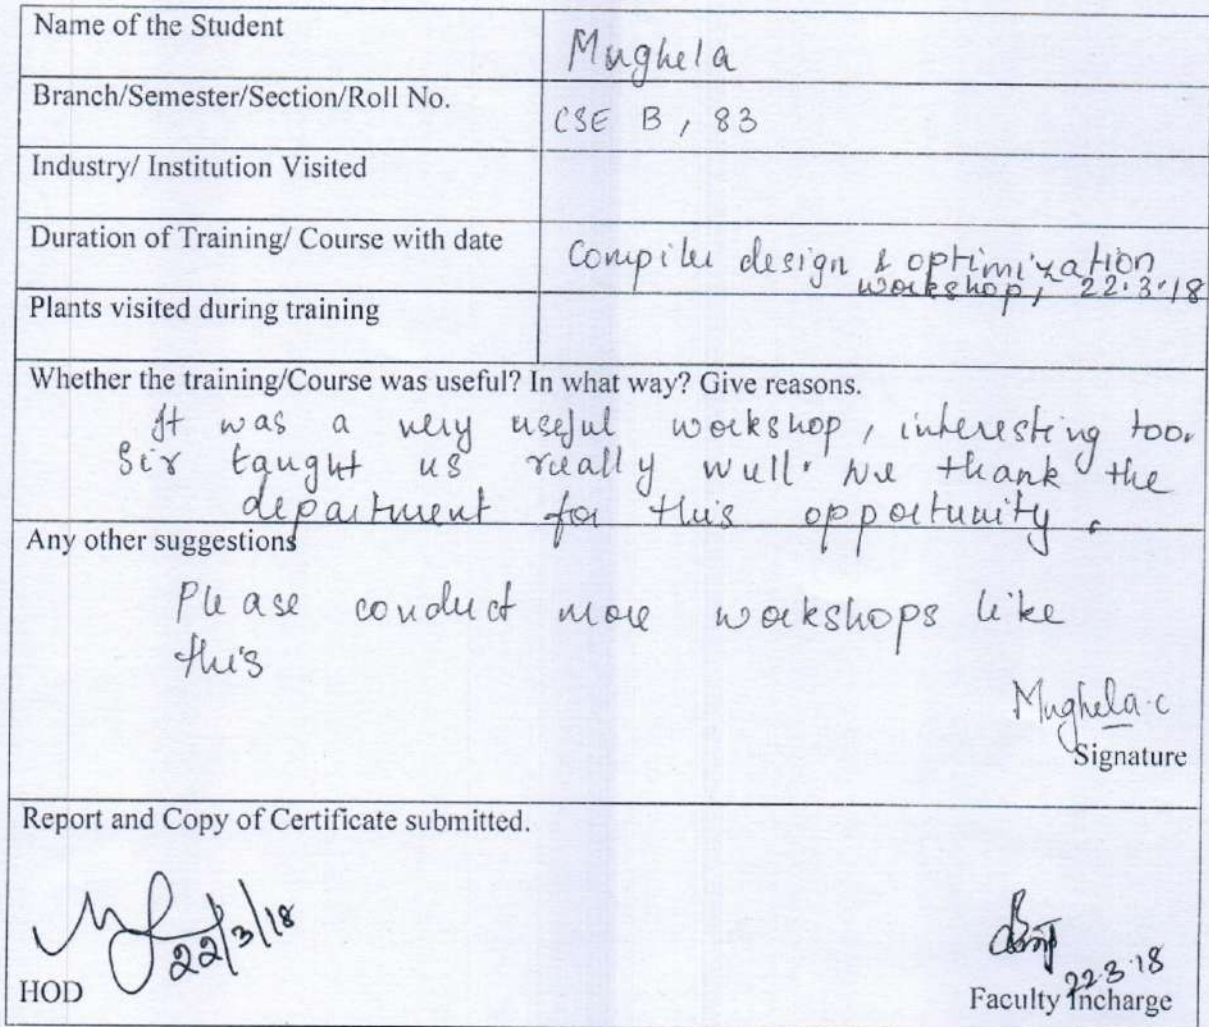 Name of the Student
Mughela
Branch/Semester/Section/Roll No.
CSE B, 83
Industry/ Institution Visited
Duration of Training/ Course with date
Compiler design & optimization
workshop, 22.3.18
Plants visited during training
Whether the training/Course was useful? In what way? Give reasons.
It was a very useful workshop, interesting too.
Sir taught us really well. We thank the
department for this opportunity.
Any other suggestions
Please conduct more workshops like
this
Mughela.c
Signature
Report and Copy of Certificate submitted.
22/3/18
HOD
22.3.18
Faculty Incharge